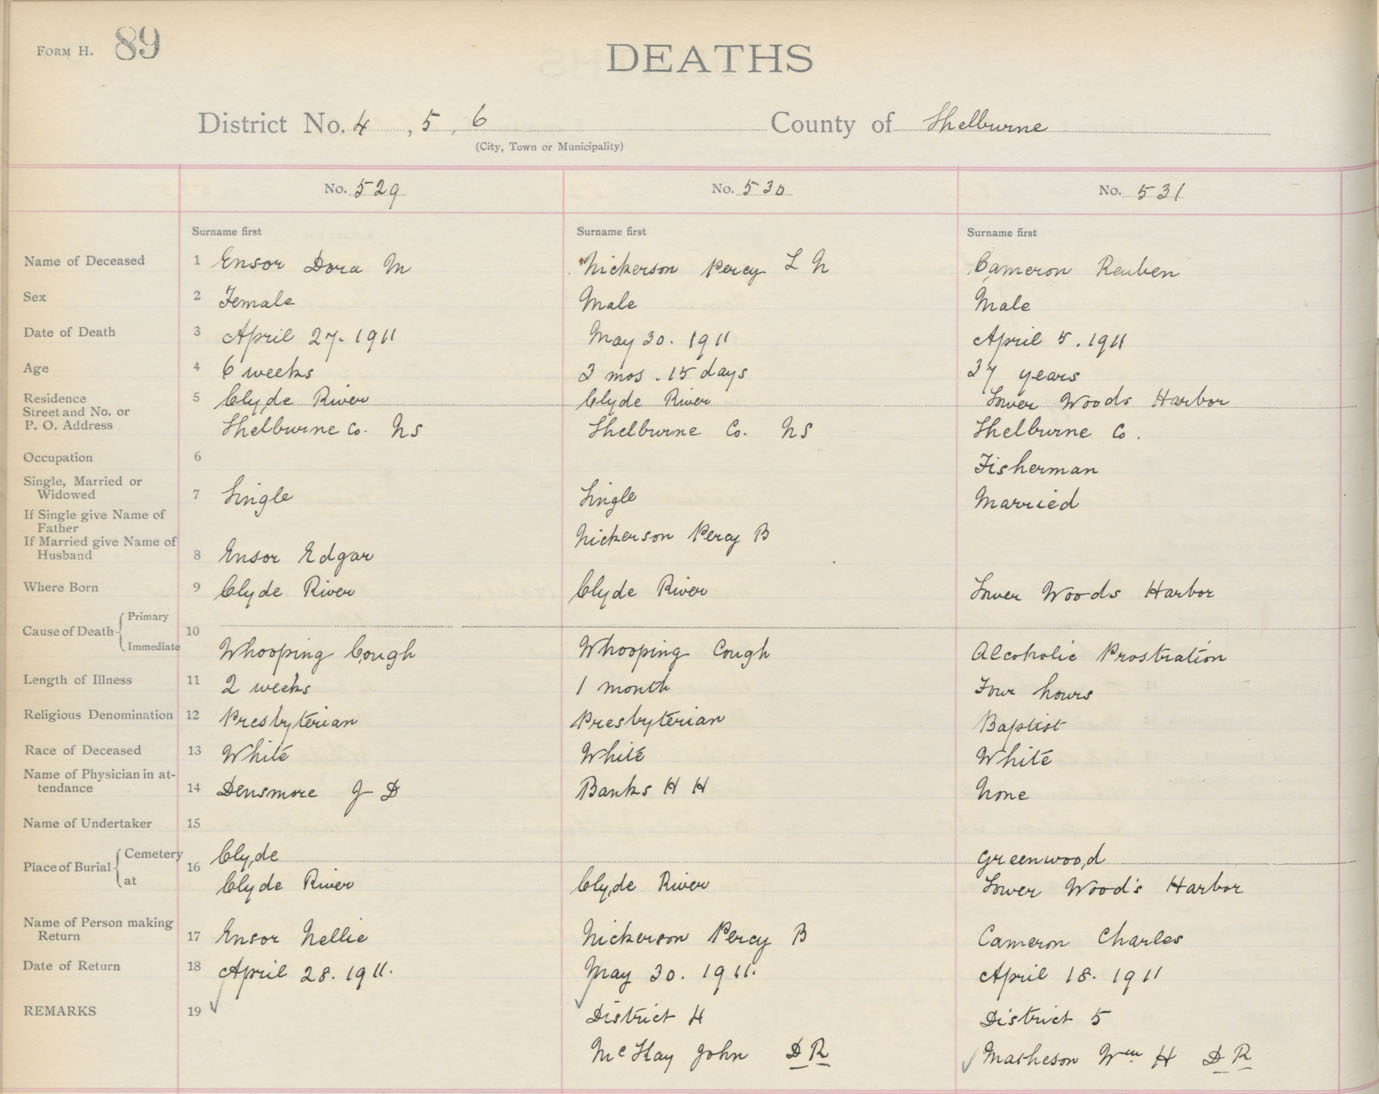 FORM H. 89
DEATHS
District No. 4 , 5 , 6 County of Shelburne
(City, Town or Municipality)
No. 529 No. 530 No. 531
Surname first Surname first Surname first
Name of Deceased 1 Ensor Dora M Nickerson Percy L N Cameron Reuben
Sex 2 Female Male Male
Date of Death 3 April 27. 1911 May 30. 1911 April 5. 1911
Age 4 6 weeks mos. 15 days years
Residence 5 Clyde River Clyde River Lower Woods Harbor
Street and No. or
P. O. Address Shelburne Co. NS Shelburne Co. NS Shelburne Co.
Occupation 6 Fisherman
Single, Married or
Widowed 7 Single Single Married
If Single give Name of
Father
If Married give Name of Nickerson Percy B
Husband 8 Ensor Edgar
Where Born 9 Clyde River Clyde River Lower Woods Harbor
Primary
Cause of Death 10
Immediate Whooping Cough Whooping Cough Alcoholic Prostration
Length of Illness 11 2 weeks 1 month Four hours
Religious Denomination 12 Presbyterian Presbyterian Baptist
Race of Deceased 13 White White White
Name of Physician in at-
tendance 14 Densmore J D Banks H H None
Name of Undertaker 15
Cemetery Clyde Greenwood
Place of Burial 16
at Clyde River Clyde River Lower Wood's Harbor
Name of Person making
Return 17 Ensor Nellie Nickerson Percy B Cameron Charles
Date of Return 18 April 28. 1911. May 30. 1911. April 18. 1911
REMARKS 19 District 4 District 5
John D R Matheson Wm H D R